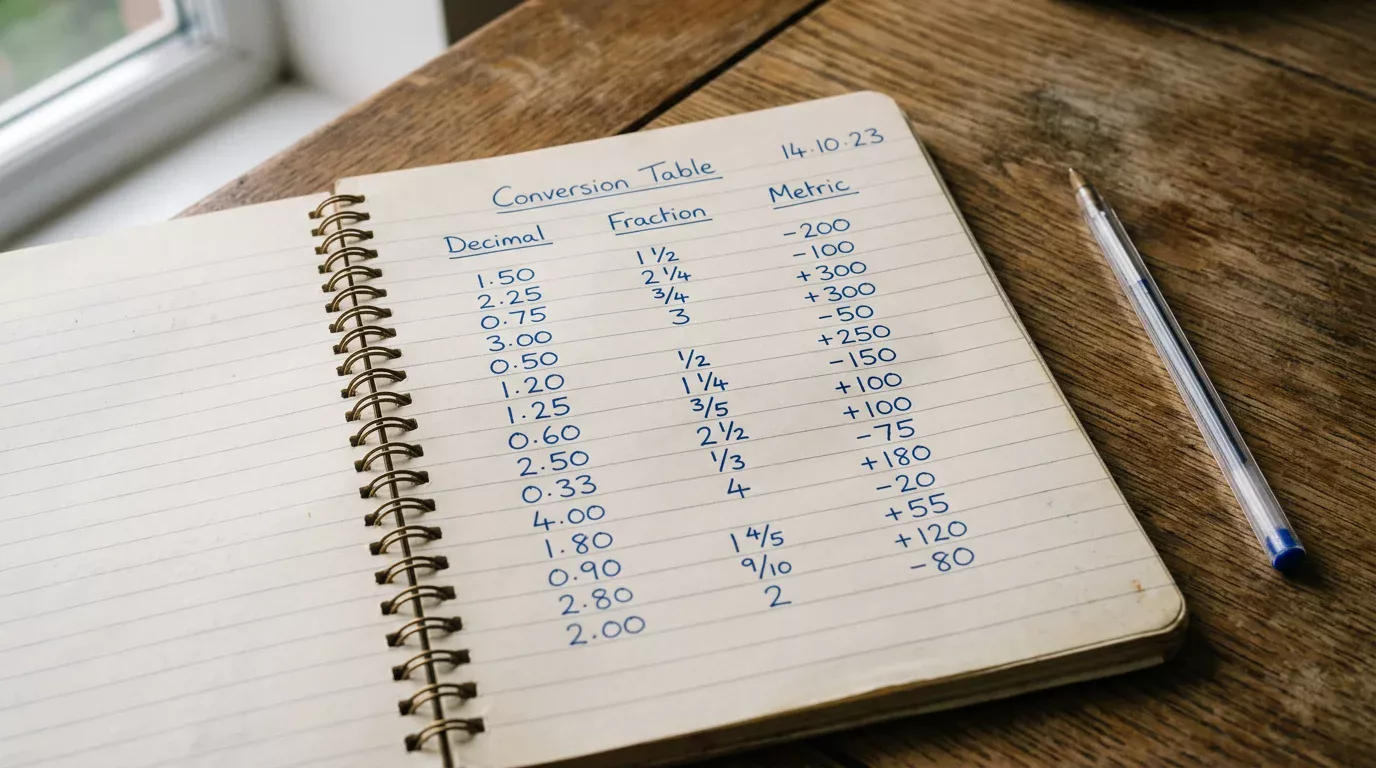 Conversion Table 14.10.23
Decimal Fraction Metric
1.50 1 1/2 -200
2.25 2 1/4 -100
0.75 3/4 +300
3.00 3 +300
0.50 -50
1.20 1/2 +250
1.25 1 1/4 -150
0.60 3/5 +100
2.50 2 1/2 +100
0.33 1/3 -75
4.00 4 +180
1.80 -20
0.90 1 4/5 +55
2.80 9/10 +120
2.00 2 -80